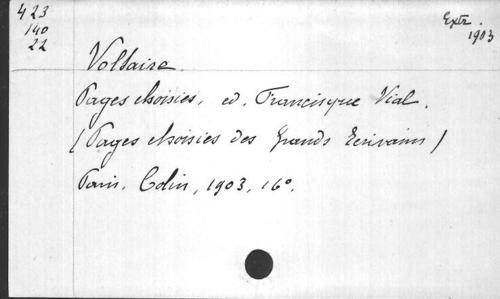 423
140
22
Extr.
1903
Voltaire.
Pages choisies, ed. Francisque Vial.
(Pages choisies des Grands Ecrivains)
Paris. Colin, 1903, 16°.